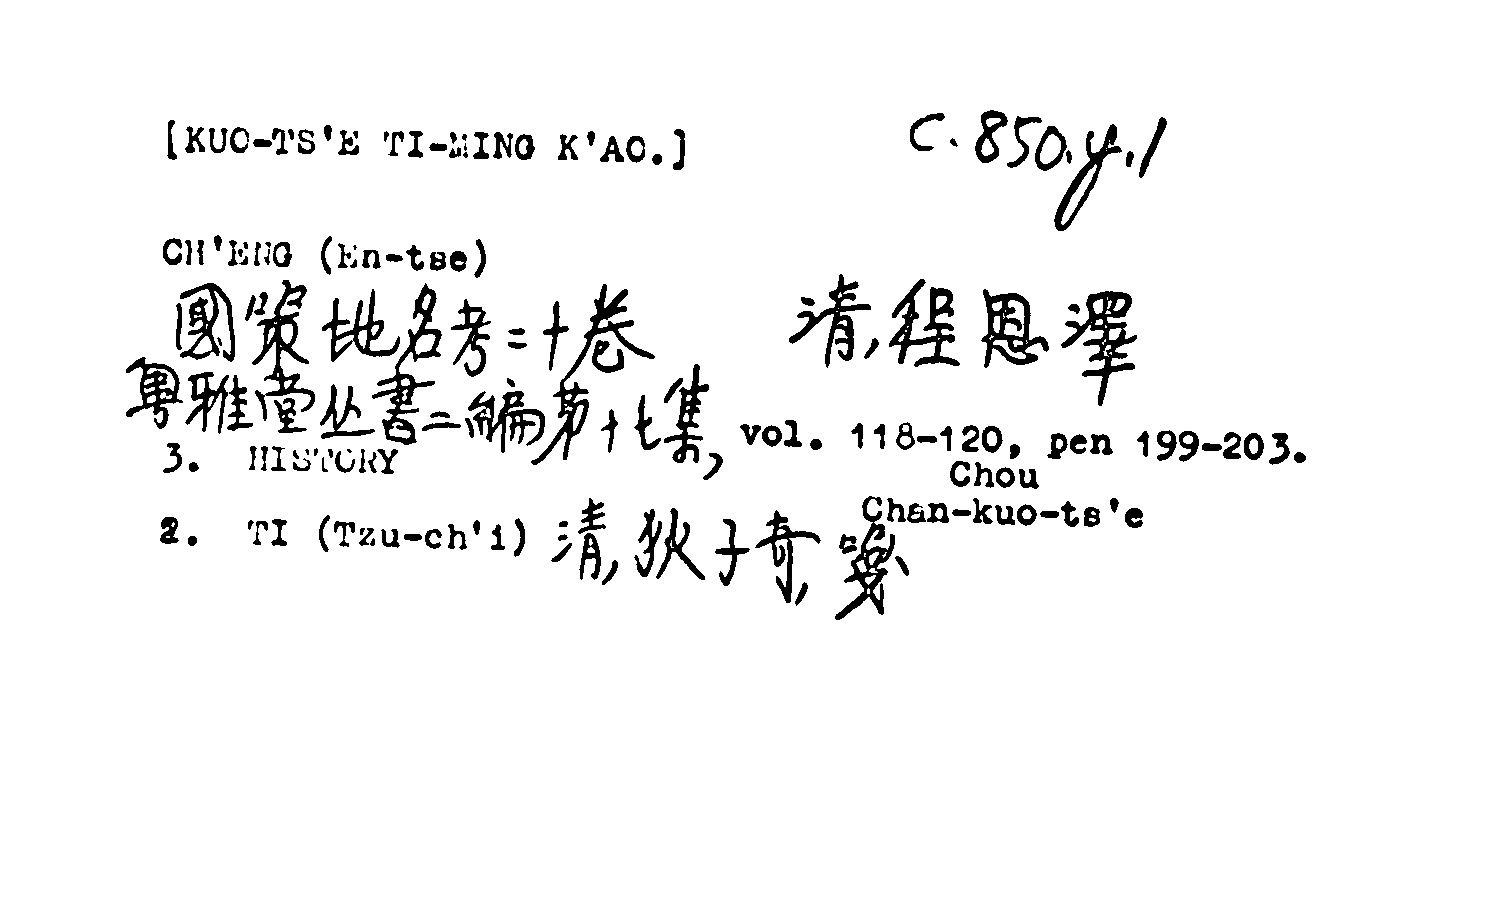 [KUO-TS'E TI-MING K'AO.] C.850.y.1
CH'ENG (En-tse)
國策地名考二十卷 清,程恩澤
粵雅堂丛書二編第十七集, vol. 118-120, pen 199-203.
3. HISTORY Chou
Chan-kuo-ts'e
2. TI (Tzu-ch'i) 清,狄子奇,箋